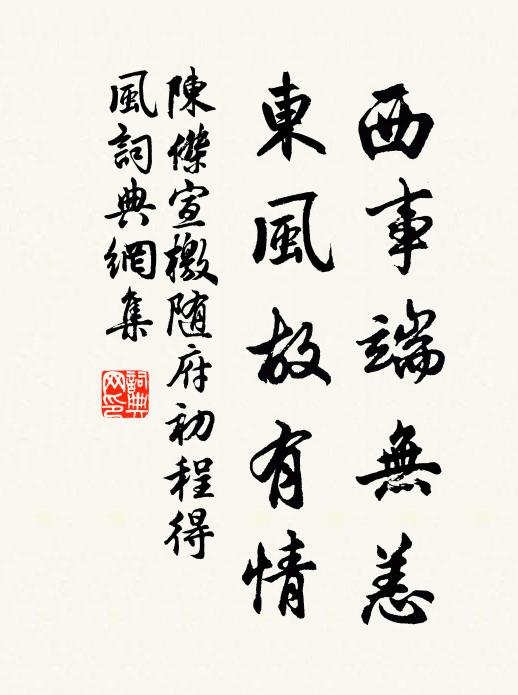 西事端無恙
東風故有情
陳傑宣檄随府初程得
風詞典網集
詞典網印